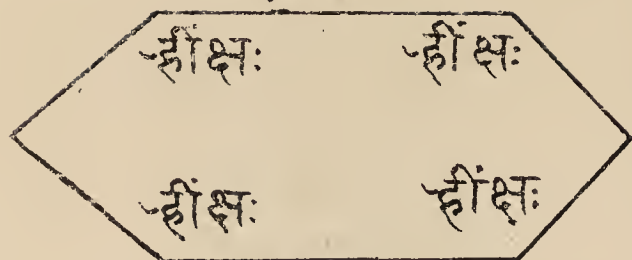 ह्रींक्षः ह्रींक्षः
ह्रींक्षः ह्रींक्षः